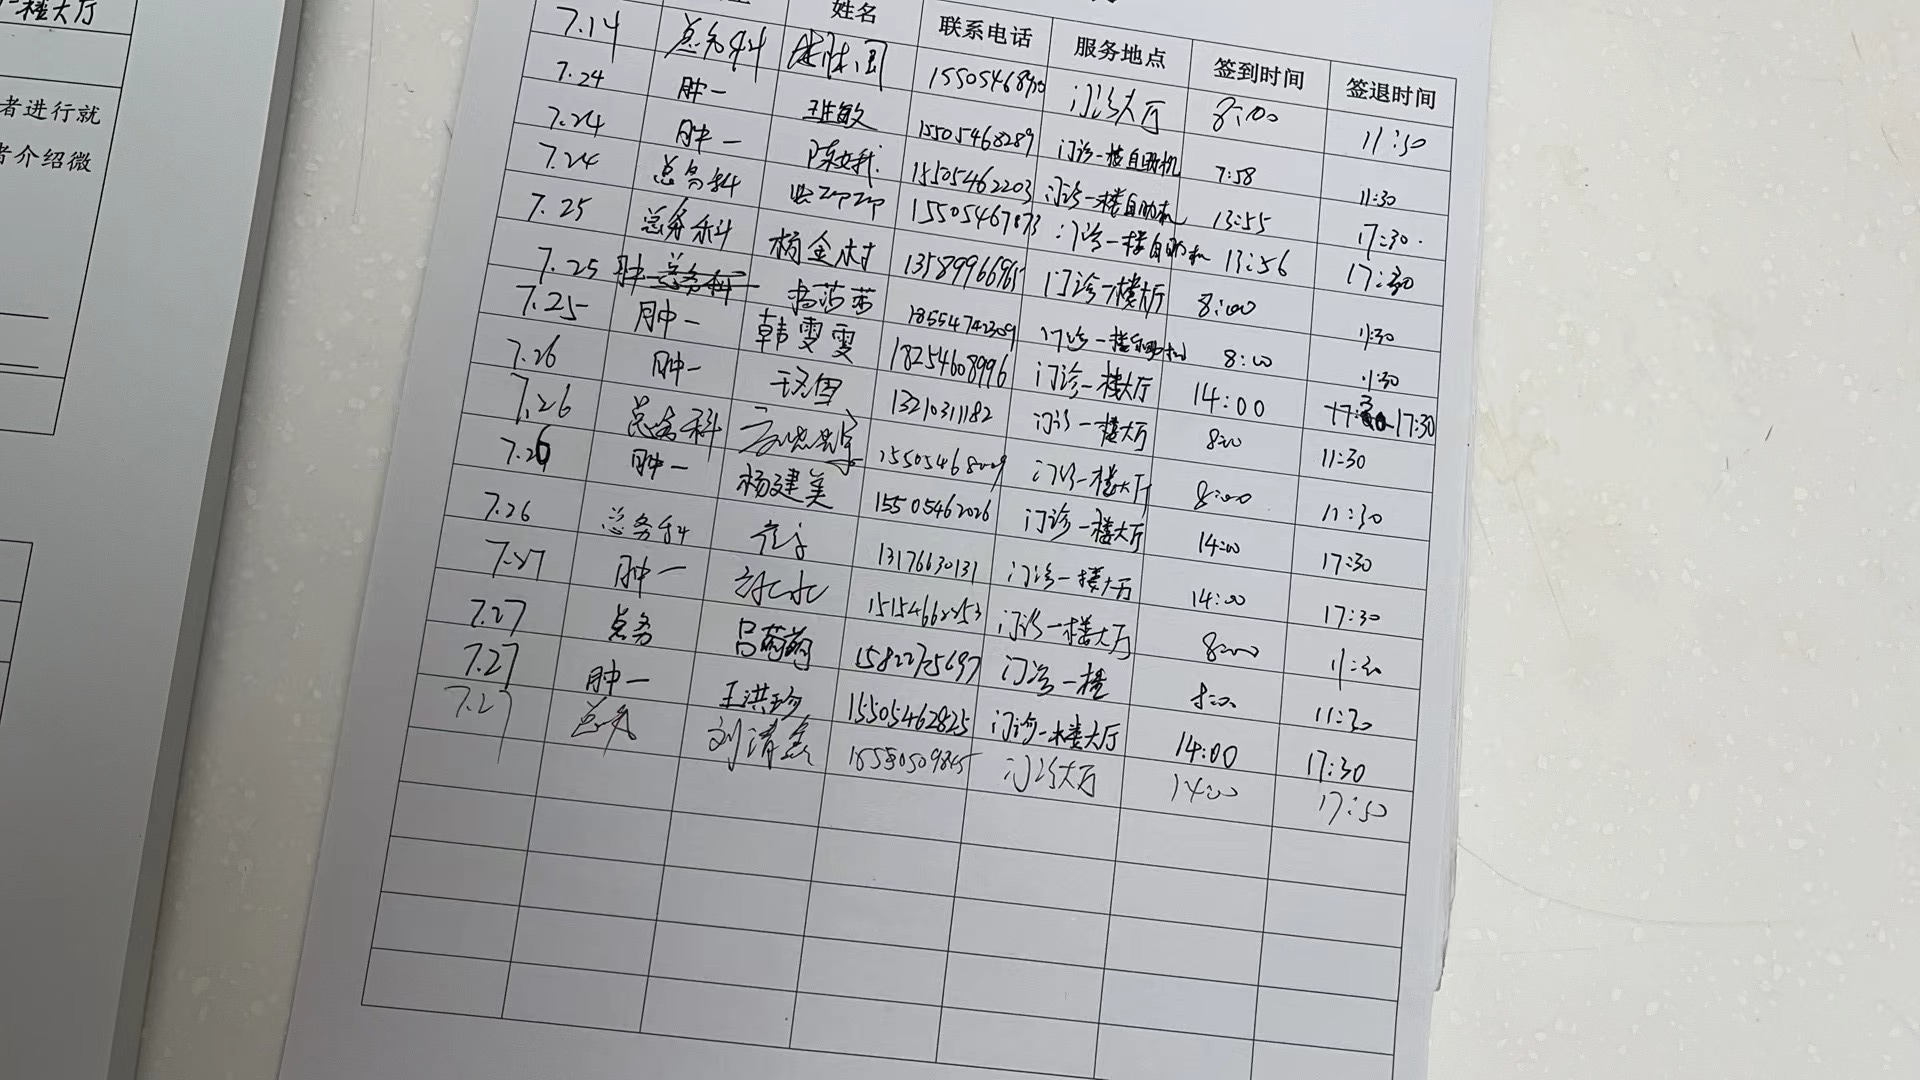 一楼大厅
者进行就
者介绍微
姓名 联系电话 服务地点 签到时间 签退时间
7.14 总务科 15505468940 门诊大厅 8:00 11:30
7.24 肿一 班敏 15505468289 门诊一楼自助机 7:58 11:30
7.24 肿一 15505462203 门诊一楼自助机 13:55 17:30.
7.24 总务科 15505467873 门诊一楼自助机 13:56 17:30
7.25 总务科 杨金村 13589966965 门诊一楼大厅 8:00 11:30
7.25 肿一 18554742309 门诊一楼自助机 8:00 11:30
7.25 肿一 韩雯雯 18254608996 门诊一楼大厅 14:00 17:30
7.26 肿一 1321031182 门诊一楼大厅 8:00 11:30
7.26 总务科 15505468009 门诊一楼大厅 8:00 11:30
7.26 肿一 杨建美 15505462026 门诊一楼大厅 14:00 17:30
7.26 总务科 13176630131 门诊一楼大厅 14:00 17:30
7.27 肿一 门诊一楼大厅 8:00 11:30
7.27 总务 吕萌萌 15822725697 门诊一楼 8:00 11:30
7.27 肿一 王洪珍 15505462825 门诊一楼大厅 14:00 17:30
7.27 总务 刘清鑫 门诊大厅 14:00 17:30